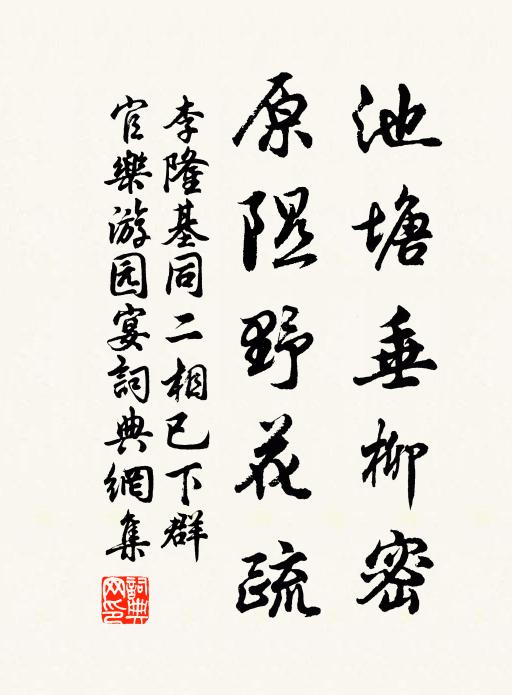 池塘垂柳密
原隰野花疏
李隆基同二相已下群
官樂游园宴詞典網集
詞典網印